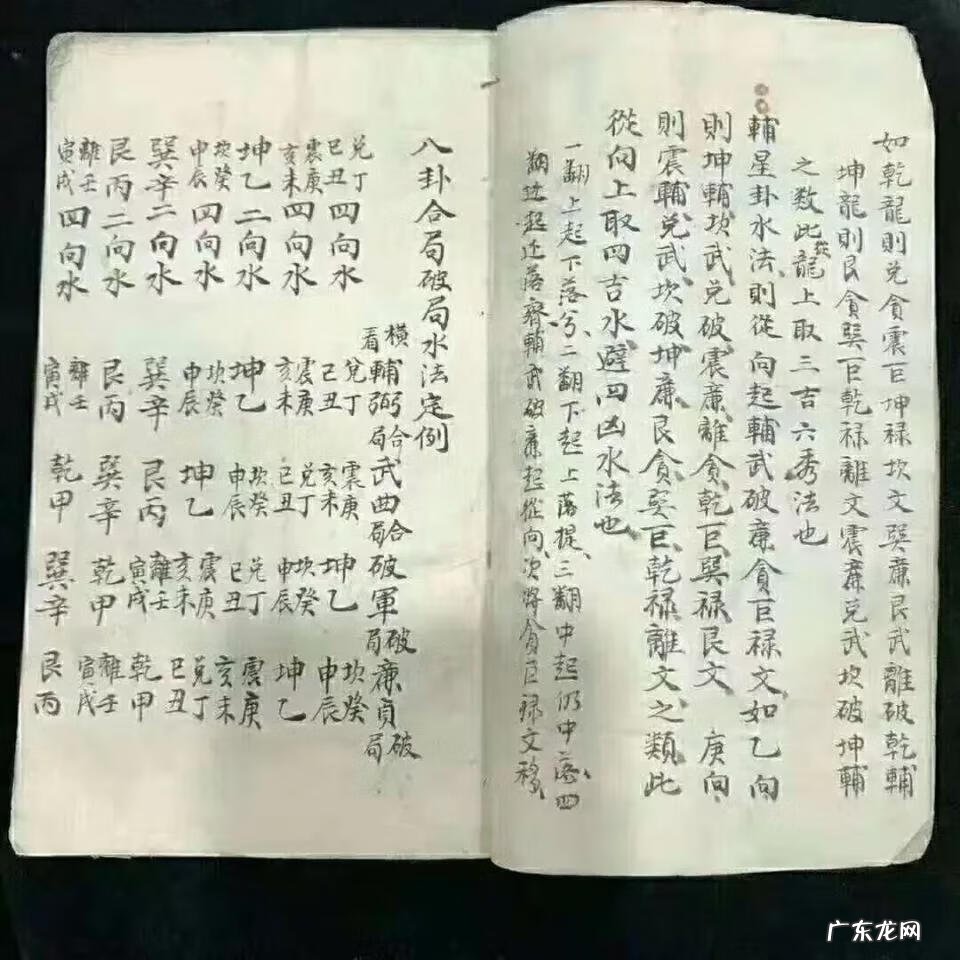 如乾龍則兌貪震巨坤禄坎文巽廉艮武離破乾輔
坤龍則艮貪巽巨乾禄離文震廉兌武坎破坤輔
之数此從龍上取三吉六秀法也
輔星卦水法、則從向起輔武破廉貪巨禄文、如乙向
則坤輔坎武、兌破震廉、離貪、乾巨、巽禄艮文 庚向
則震輔兌武、坎破坤廉、艮貪、巽巨、乾禄離文、之類、此
從向上取四吉水、避四凶水法也、
一翻上起下落兮、二翻下起上落提、三翻中起仍中落、四
翻边起边落齊輔武破廉起從向、次將貪巨禄文移、
八卦合局破局水法定例
橫看 輔弼合局 武曲合局 破軍破局 廉貞破局
兌丁巳丑四向水 兌丁巳丑 震庚亥未 坤乙 坎癸申辰
震庚亥未四向水 震庚亥未 兌丁巳丑 坎癸申辰 坤乙
坤乙二向水 坤乙 坎癸申辰 兌丁巳丑 震庚亥未
坎癸申辰四向水 坎癸申辰 坤乙 震庚亥未 兌丁巳丑
巽辛二向水 巽辛 艮丙 離壬寅戌 乾甲
艮丙二向水 艮丙 巽辛 乾甲 離壬寅戌
離壬寅戌四向水 離壬寅戌 乾甲 巽辛 艮丙
广东龙网